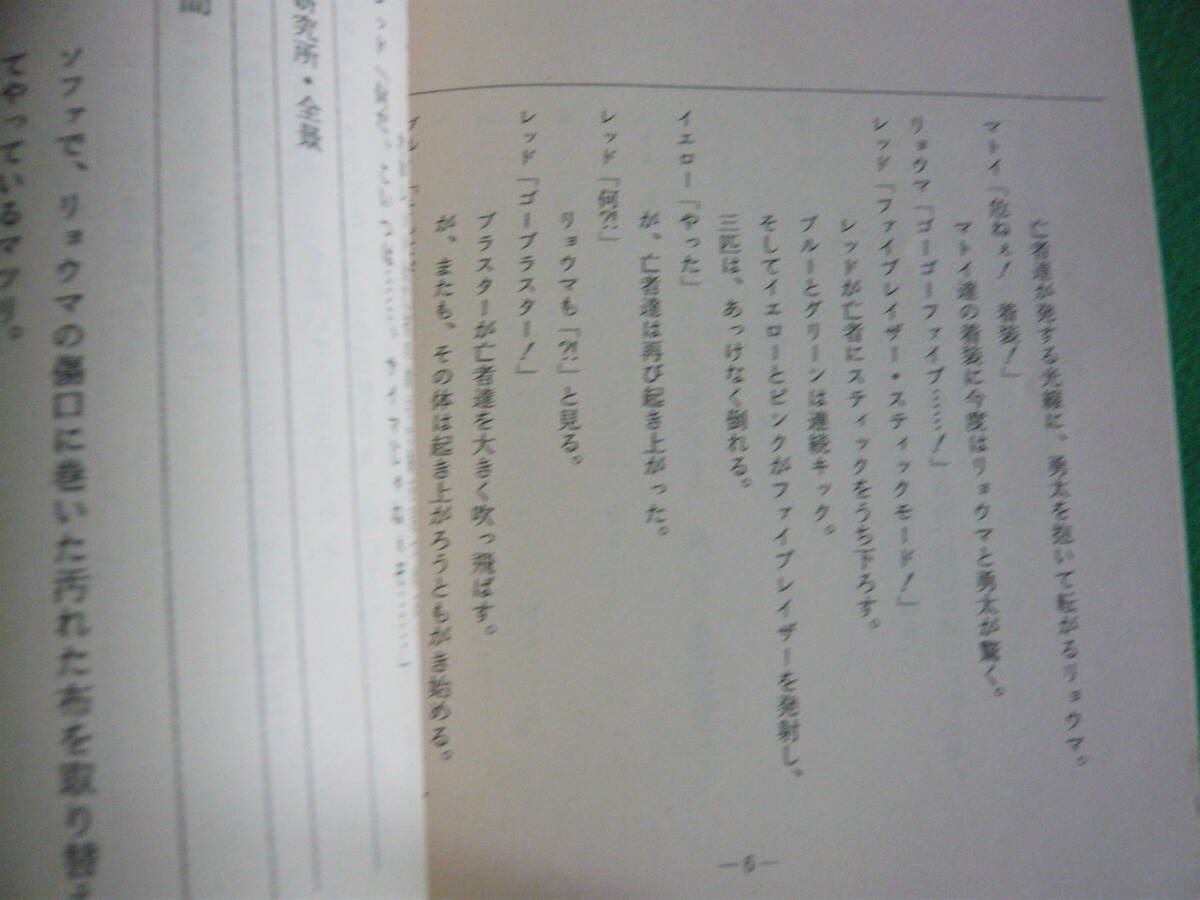 亡者達が発する光線に、勇太を抱いて転がるリョウマ。
マトイ「危ねぇ！　着装！」
マトイ達の着装に今度はリョウマと勇太が驚く。
リョウマ「ゴーゴーファイブ……！」
レッド「ファイブレイザー・スティックモード！」
レッドが亡者にスティックをうち下ろす。
ブルーとグリーンは連続キック。
そしてイエローとピンクがファイブレイザーを発射し、
三匹は、あっけなく倒れる。
イエロー「やった」
が、亡者達は再び起き上がった。
レッド「何?!」
リョウマも「?!」と見る。
レッド「ゴーブラスター！」
ブラスターが亡者達を大きく吹っ飛ばす。
が、またも、その体は起き上がろうともがき始める。
—6—
研究所・全景
間
ソファで、リョウマの傷口に巻いた汚れた布を取り替え
てやっているマツリ。